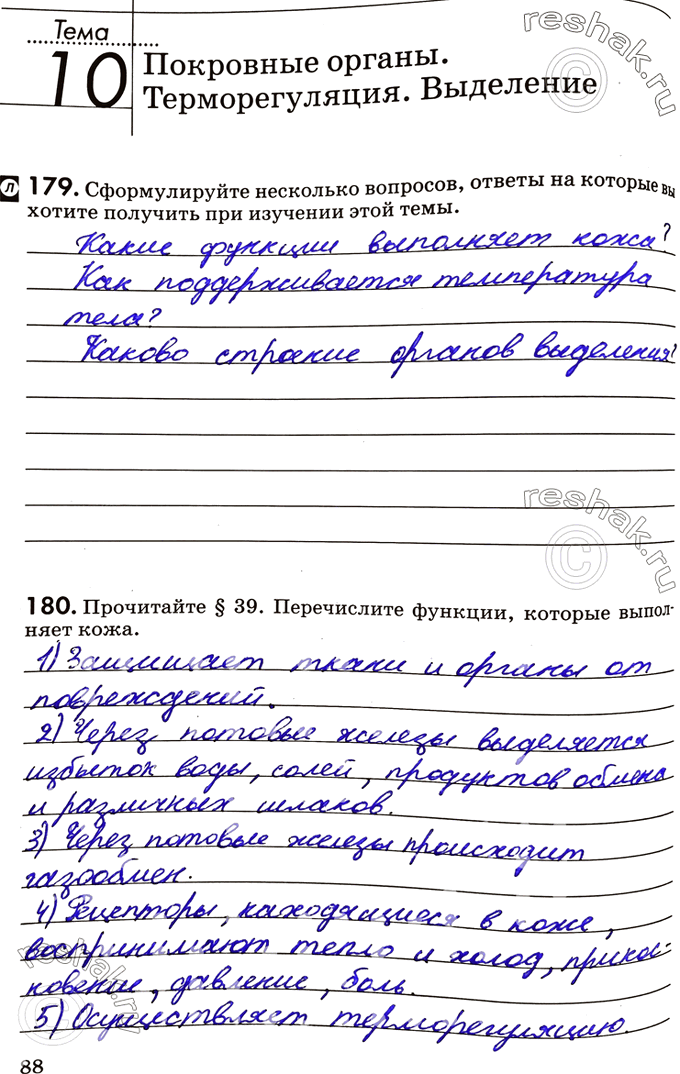 Тема
10
Покровные органы.
Терморегуляция. Выделение
reshak.ru
Л 179. Сформулируйте несколько вопросов, ответы на которые вы
хотите получить при изучении этой темы.
Какие функции выполняет кожа?
Как поддерживается температура
тела?
Каково строение органов выделения?
reshak.ru
180. Прочитайте § 39. Перечислите функции, которые выпол-
няет кожа.
1) Защищает ткани и органы от
повреждений.
2) Через потовые железы выделяется
избыток воды, солей, продуктов обмена
и различных шлаков.
3) Через потовые железы происходит
газообмен.
4) Рецепторы, находящиеся в коже,
воспринимают тепло и холод, прикос-
новение, давление, боль.
5) Осуществляет терморегуляцию.
reshak.ru
88